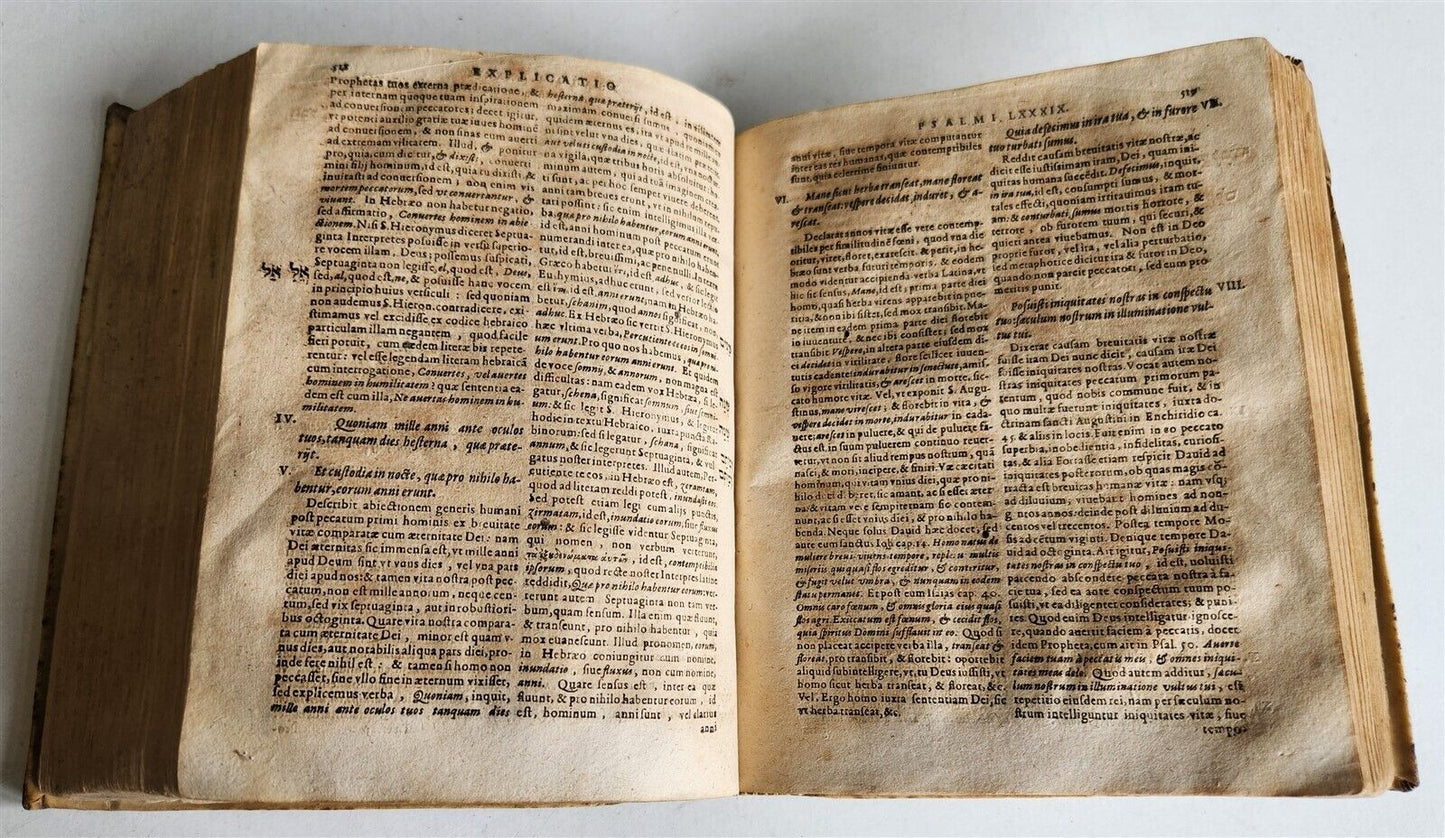 EXPLICATIO
Prophetas tuos externa prædicatione, &
per internam quoque tuam inspirationem
ad conuersionem peccatores: decet igitur,
vt potenti auxilio gratiæ tuæ iuues hominē
ad conuersionem, & non sinas eum auerti
ad extremam vilitatem. Illud, & ponitur
pro, quia, cum dicitur, & dixisti, conuerti
mini filij hominum, id est, quia tu dixisti, &
inuitasti ad conuersionem, non enim vis
mortem peccatorum, sed vt conuertantur, &
viuant. In Hebræo non habetur negatio,
sed affirmatio, Conuertes hominem in abie
ctionem. Nisi S. Hieronymus diceret Septua-
ginta Interpretes posuisse in versu superio-
re vocem illam, Deus; possemus suspicati,
Septuaginta non legisse, el, quod est, Deus,
sed, al, quod est, ne, & posuisse hanc vocem
in principio huius versiculi: sed quoniam
non audemus S. Hieron. contradicere, exi-
stimamus vel excidisse ex codice hebraico
particulam illam negantem, quod facile
fieri potuit, cum eædem literæ bis repete-
rentur: vel esse legendam literam hebraicā
cum interrogatione, Conuertes, vel auertes
hominem in humilitatem? quæ sententia ea-
dem est cum illa, Ne auertas hominem in hu-
militatem.
IV.
Quoniam mille anni ante oculos
tuos, tanquam dies hesterna, quæ præte-
rijt.
V.
Et custodia in nocte, quæ pro nihilo ha-
bentur, eorum anni erunt.
Describit abiectionem generis humani
post peccatum primi hominis ex breuitate
vitæ comparatæ cum æternitate Dei: nam
Dei æternitas sic immensa est, vt mille anni
apud Deum sint vt vnus dies, vel vna pars
diei apud nos: & tamen vita nostra post pec-
catum, non est mille annorum, neque cen-
tum, sed vix septuaginta, aut in robustiori-
bus octoginta. Quare vita nostra compara-
ta cum æternitate Dei, minor est quam v-
nus dies, aut notabilis aliqua pars diei, pro-
inde fere nihil est: & tamen si homo non
peccasset, sine vllo fine in æternum vixisset,
sed explicemus verba, Quoniam, inquit,
mille anni ante oculos tuos tanquam dies
hesterna, quæ præterijt, id est,
maximum
quidem æternus es, ita vt apud te mille an-
ni sint velut vna dies,
aut velut custodia in nocte, id est, vna
na vigila, quæ tribus horis absoluitur:
minum autem, qui ad tuā imaginem
ti sunt, ac per hoc semper viuere deberent,
anni tam breues erunt, vt in nihilum
tati possint: sic enim intelligimus illa ver-
ba, quæ pro nihilo habentur, eorum anni erunt,
id est, anni hominum post peccatum erunt
numerandi inter ea, quæ pro nihilo haben-
tur, id est, breuissimi, ac pene nulli. In textu
Græco habetur ἔτι, id est, adhuc, & sic legit
Euthymius, adhuc erunt: sed verior lectio
est
betur, schanim, quod annos significat, non,
adhuc. Ex Hebræo sic vertit S. Hieronymus
hæc vltima verba, Percutiente te eos in somni-
um erunt. Pro quo nos habemus, quæ pro ni-
hilo habentur eorum anni erunt. Et quidem
de voce somnij, & annorum, non magna est
difficultas: nam eadem vox Hebræa, si le-
gatur, schena, significat somnum, siue somni-
um: & sic legit S. Hieronymus, & legunt
hodie in textu Hebraico, iuxta punctis Ra-
binorum: sed si legatur, schana, significat
annum, & sic legerunt Septuaginta, & vul
gatus noster interpretes. Illud autem, Per-
cutiente te eos, in Hebræo est, zeramtam,
quod ad literam reddi potest, inundasti eos.
Sed potest etiam legi cum alijs punctis,
zirmatam, id est, inundatio eorum, siue fluxus
eorum: & sic legisse videntur Septuaginta,
qui nomen, non verbum verterunt,
τὰ ἐξουδενώματα αὐτῶν, id est, contemptibilia
ipsorum, quod recte noster Interpres latine
reddidit, Quæ pro nihilo habentur eorum: ver-
terunt autem Septuaginta non tam ver-
bum, quam sensum. Illa enim quæ fluunt,
& transeunt, pro nihilo habentur, quia
mox euanescunt. Illud pronomen, eorum,
in Hebræo coniungitur cum nomine,
inundatio, siue fluxus, non cum nomine,
anni. Quare sensus est, inter ea quæ
fluunt, & pro nihilo habentur eorum, id
est, hominum, anni sunt, vel illarum
anni
PSALMI. LXXXIX.
anni vitæ, siue tempora vitæ computantur
inter eas res humanas, quæ contemptibiles
sunt, quia celerrime finiuntur.
VI.
Mane sicut herba transeat, mane floreat
& transeat: vespere decidat, induret, & a-
rescat.
Declarat annos vitæ esse vere contemp-
tibiles per similitudinē fœni, quod vna die
oritur, viret, floret, exarescit. & perit, in he-
bræo sunt verba futuri temporis. & eodem
modo videntur accipienda verba Latina, vt
hic sit sensus, Mane, id est, prima parte diei
homo, quasi herba virens apparebit in pue-
ritia, & non ibi sistet, sed mox transibit. Ma-
ne item in eadem prima parte diei florebit
in iuuentute, & nec ibi consistet; sed mox
transibit Vespere, in altera parte eiusdem diei
decidet in virilitate, flore scilicet iuuen-
tutis cadente: indurabitur in senectute, amis-
so vigore virilitatis, & arescet in morte, sic-
cato humore vitæ. Vel, vt exponit S. Augu-
stinus, mane virescet; & florebit in vita, &
vespere decidet in morte, indurabitur in cada-
uere; arescet in puluere, & qui de puluere fa-
ctus est in suum puluerem continuo reuer-
tetur, vt non sit aliud tempus nostrum, quā
nasci, & mori, incipere, & finiri. Væ cæcitati
hominum, qui vitam vnius diei, quæ pro ni-
hilo duci deberet, sic amant, ac si esset æter-
na; & vitam vere sempiternam sic contem-
nunt, ac si esset vnius diei, & pro nihilo ha-
benda. Neque solus Dauid hæc docet, sed
ante eum sanctus Iob cap. 14. Homo natus de
muliere breui viuens tempore, repletur multis
miserijs qui quasi flos egreditur, & conteritur,
& fugit velut vmbra, & nunquam in eodem
statu permanet. Et post eum Isaias cap. 40.
Omnis caro fœnum, & omnis gloria eius quasi
flos agri. Exiccatum est fœnum, & cecidit flos,
quia spiritus Domini sufflauit in eo. Quod si
non placeat accipere verba illa, transeat &
floreat, pro transibit, & florebit: oportebit
aliquid subintelligere, vt, tu Deus iussisti, vt
homo sicut herba transeat, & floreat, &c.
Vel, Ergo homo iuxta sententiam Dei, sic
vt herba transeat, &c.
Quia defecimus in ira tua, & in furore
VII.
tuo turbati sumus.
Reddit causam breuitatis vitæ nostræ, ac
dicit esse iustissimam iram, Dei, quam ini-
quitas humana succēdit. Defecimus, inquit,
in ira tua, id est, consumpti sumus, & mor-
tales effecti, quoniam irritauimus iram tu-
am: & conturbati sumus mortis horrore, &
terrore, ob furorem tuum, qui securi, &
quieti antea viuebamus. Non est in Deo
proprie furor, vel ira, vel alia perturbatio,
sed metaphorice dicitur ira & furor in Deo,
quando non pareit peccatori, sed eum pro-
meritis punit.
Posuisti iniquitates nostras in conspectu
VIII.
tuo: sæculum nostrum in illuminatione vul-
tus tui.
Dixerat causam breuitatis vitæ nostræ
fuisse iram Dei nunc dicit, causam iræ Dei
fuisse iniquitates nostras. Vocat autem no-
stras iniquitates peccatum primorum pa-
rentum, quod nobis commune fuit, & in
quo multæ fuerunt iniquitates, iuxta do-
ctrinam sancti Augustini in Enchiridio ca.
45. & alius in locis. Fuit enim in eo peccato
superbia, inobedientia, infidelitas, curiosi-
tas, & alia Forrasse etiam respicit Dauid ad
iniquitates posterorum, ob quas magis cō-
tracta est breuitas humanæ vitæ: nam vsq;
ad diluuium, viuebant homines ad non-
gentos annos: deinde post diluuium ad du-
centos vel trecentos. Postea tempore Mo-
sis ad cētum viginti. Denique tempore Da-
uid ad octoginta. Ait igitur, Posuisti iniqui-
tates nostras in conspectu tuo, id est, noluisti
parcendo abscondere peccata nostra à fa-
cie tua, sed ea ante conspectum tuum po-
suisti, vt ea diligenter considerates, & puni-
tes. Quod enim Deus intelligatur ignosce-
re, quando auertit faciem à peccatis, docet
idem Propheta, cum ait in Psal. 50. Auerte
faciem tuam à peccatis meis, & omnes iniqui-
tates meas dele. Quod autem additur, sæcu-
lum nostrum in illuminatione vultus tui, est
repetitio eiusdem rei, nam per sæculum no-
strum intelliguntur iniquitates vitæ, siue
tempo-